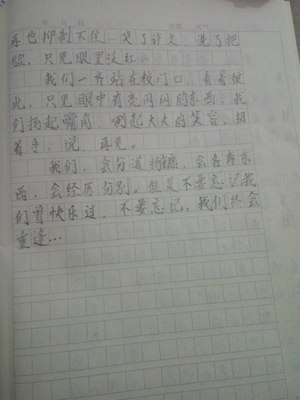 年 月 日
再也抑制不住…哭了许久，洗了把
脸，只见眼里泛红
我们一齐站在校门口，看着彼
此，只见眼中有亮闪闪的东西，我
们扬起嘴角，咧起大大的笑容，招
着手，说，再见。
我们，会分道扬镳，会各奔东
西，会经历分别。但是不要忘记我
们曾快乐过，不要忘记，我们终会
重逢…